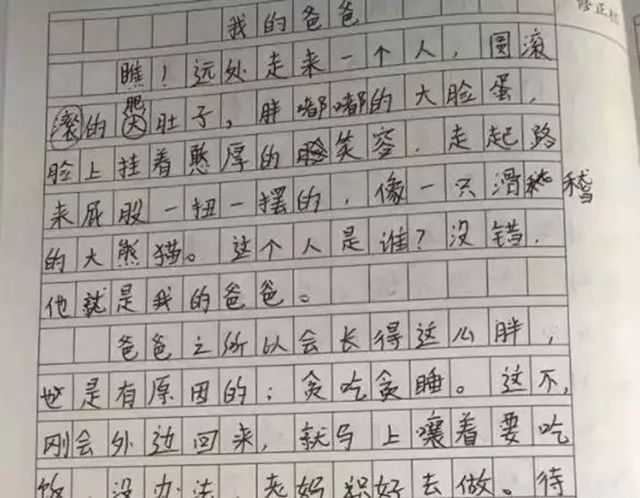 我的爸爸
修正
瞧！远处走来一个人，圆滚
滚的肥大肚子，胖嘟嘟的大脸蛋，
脸上挂着憨厚的笑容，走起路
来屁股一扭一摆的，像一只滑稽
的大熊猫。这个人是谁？没错，
他就是我的爸爸。
爸爸之所以会长得这么胖，
也是有原因的：贪吃贪睡。这不，
刚会外边回来，就马上嚷着要吃
饭，没办法，老妈只好去做。待